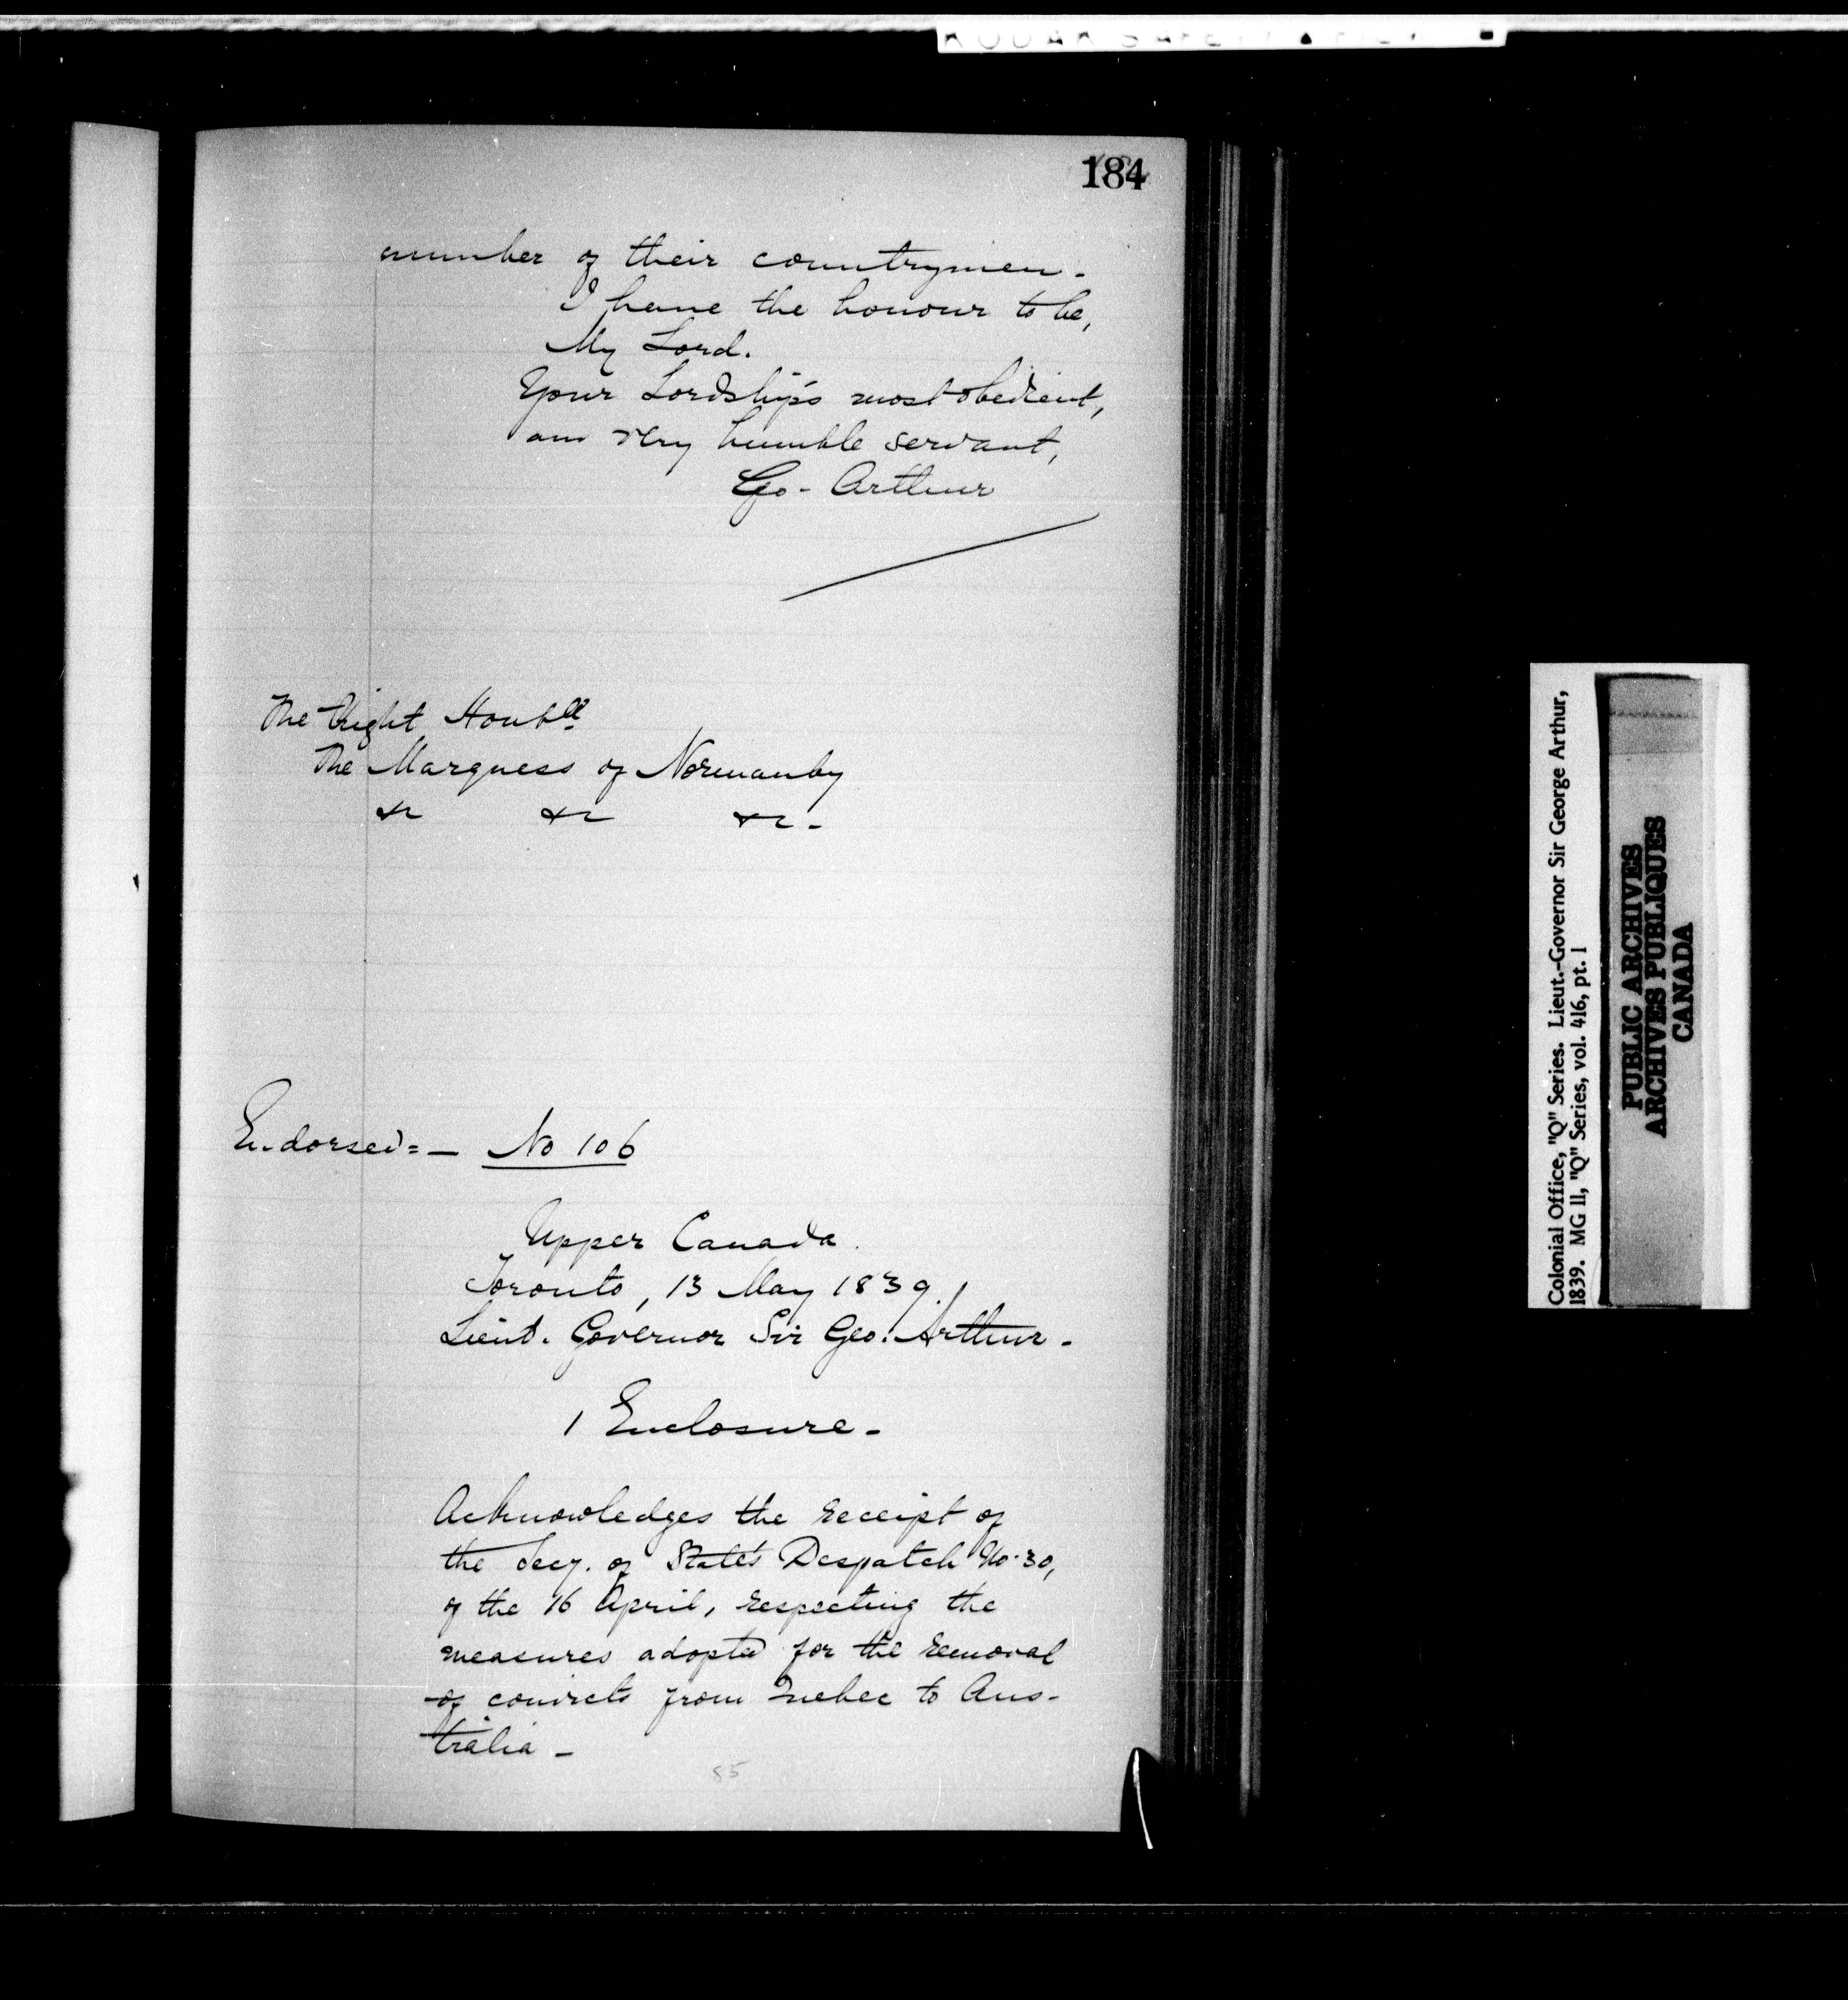 184
number of their countrymen.
I have the honour to be,
My Lord.
Your Lordship's most obedient,
and very humble servant,
Geo. Arthur
The Right Honble
The Marquess of Normanby
&c &c &c.
Endorsed:— No 106
Upper Canada.
Toronto, 13 May 1839.
Lieut. Governor Sir Geo. Arthur.
1 Enclosure.
Acknowledges the receipt of
the Secy. of State's Despatch No. 30,
of the 16 April, respecting the
measures adopted for the removal
of convicts from Quebec to Aus-
tralia —
85
Colonial Office, "Q" Series. Lieut.-Governor Sir George Arthur,
1839. MG 11, "Q" Series, vol. 416, pt. 1
PUBLIC ARCHIVES
ARCHIVES PUBLIQUES
CANADA